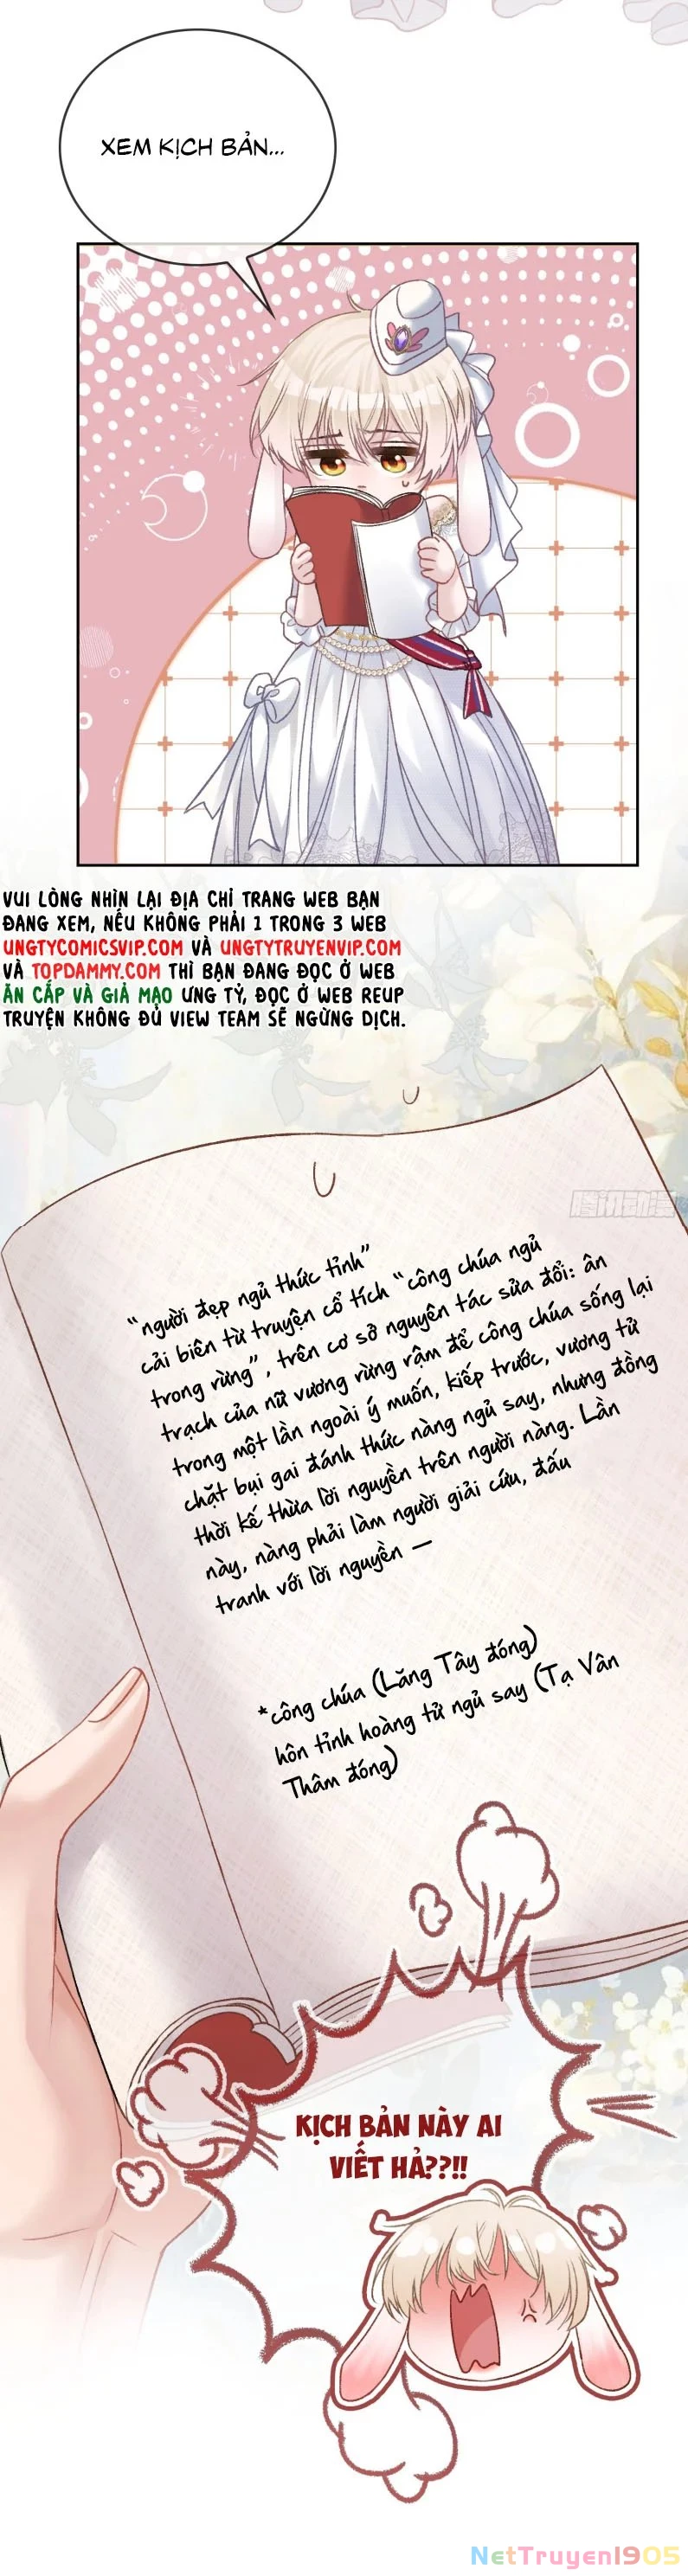 XEM KỊCH BẢN...
VUI LÒNG NHÌN LẠI ĐỊA CHỈ TRANG WEB BẠN
ĐANG XEM, NẾU KHÔNG PHẢI 1 TRONG 3 WEB
UNGTYCOMICSVIP.COM VÀ UNGTYTRUYENVIP.COM
VÀ TOPDAMMY.COM THÌ BẠN ĐANG ĐỌC Ở WEB
ĂN CẮP VÀ GIẢ MẠO ƯNG TỶ, ĐỌC Ở WEB REUP
TRUYỆN KHÔNG ĐỦ VIEW TEAM SẼ NGỪNG DỊCH.
腾讯动漫
"người đẹp ngủ thức tỉnh"
cải biên từ truyện cổ tích "công chúa ngủ
trong rừng", trên cơ sở nguyên tác sửa đổi: ân
trạch của nữ vương rừng rậm để công chúa sống lại
trong một lần ngoài ý muốn, kiếp trước, vương tử
chặt bụi gai đánh thức nàng ngủ say, nhưng đồng
thời kế thừa lời nguyền trên người nàng. Lần
này, nàng phải làm người giải cứu, đấu
tranh với lời nguyền —
*công chúa (Lăng Tây đóng)
hôn tỉnh hoàng tử ngủ say (Tạ Vân
Thâm đóng)
KỊCH BẢN NÀY AI
VIẾT HẢ??!!
NetTruyen1905